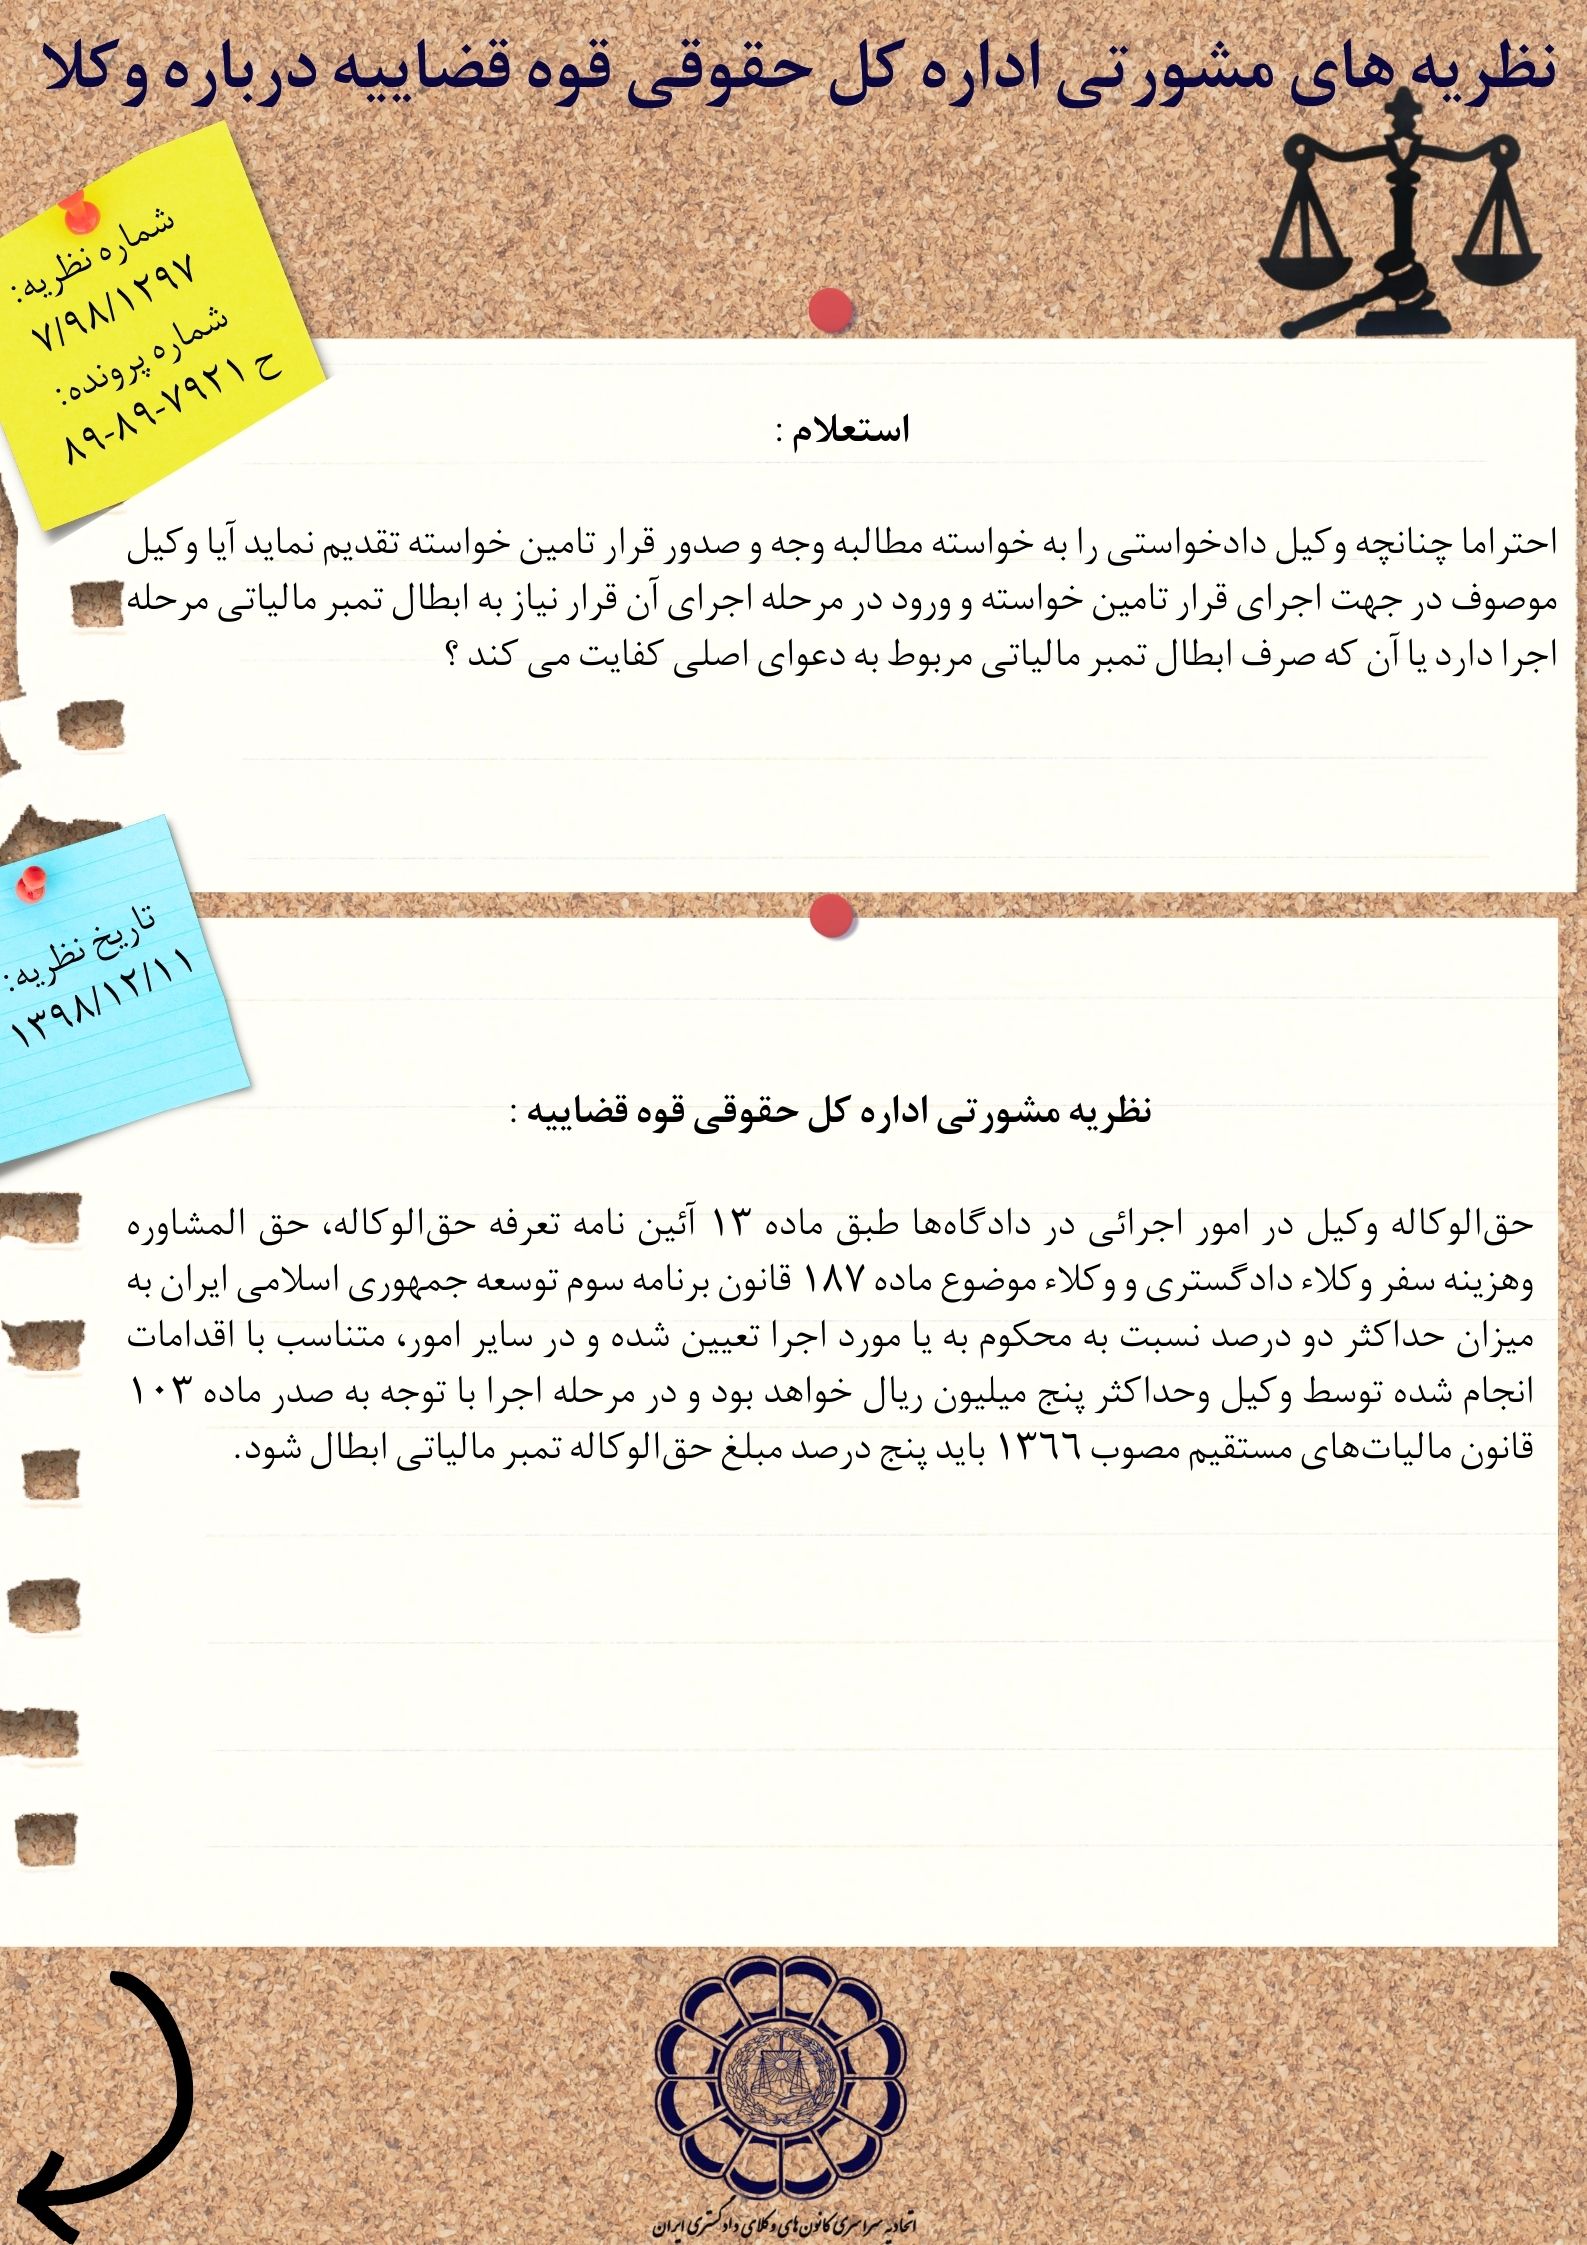 نظریه های مشورتی اداره کل حقوقی قوه قضاییه درباره وکلا
شماره نظریه:
۷/۹۸/۱۲۹۷
شماره پرونده:
ح ۷۹۲۱-۸۹-۸۹
استعلام :
احتراما چنانچه وکیل دادخواستی را به خواسته مطالبه وجه و صدور قرار تامین خواسته تقدیم نماید آیا وکیل
موصوف در جهت اجرای قرار تامین خواسته و ورود در مرحله اجرای آن قرار نیاز به ابطال تمبر مالیاتی مرحله
اجرا دارد یا آن که صرف ابطال تمبر مالیاتی مربوط به دعوای اصلی کفایت می کند ؟
تاریخ نظریه:
۱۳۹۸/۱۲/۱۱
نظریه مشورتی اداره کل حقوقی قوه قضاییه :
حق‌الوکاله وکیل در امور اجرائی در دادگاه‌ها طبق ماده ۱۳ آئین نامه تعرفه حق‌الوکاله، حق المشاوره
وهزینه سفر وکلاء دادگستری و وکلاء موضوع ماده ۱۸۷ قانون برنامه سوم توسعه جمهوری اسلامی ایران به
میزان حداکثر دو درصد نسبت به محکوم به یا مورد اجرا تعیین شده و در سایر امور، متناسب با اقدامات
انجام شده توسط وکیل وحداکثر پنج میلیون ریال خواهد بود و در مرحله اجرا با توجه به صدر ماده ۱۰۳
قانون مالیات‌های مستقیم مصوب ۱۳٦٦ باید پنج درصد مبلغ حق‌الوکاله تمبر مالیاتی ابطال شود.
اتحادیه سراسری کانون های وکلای دادگستری ایران